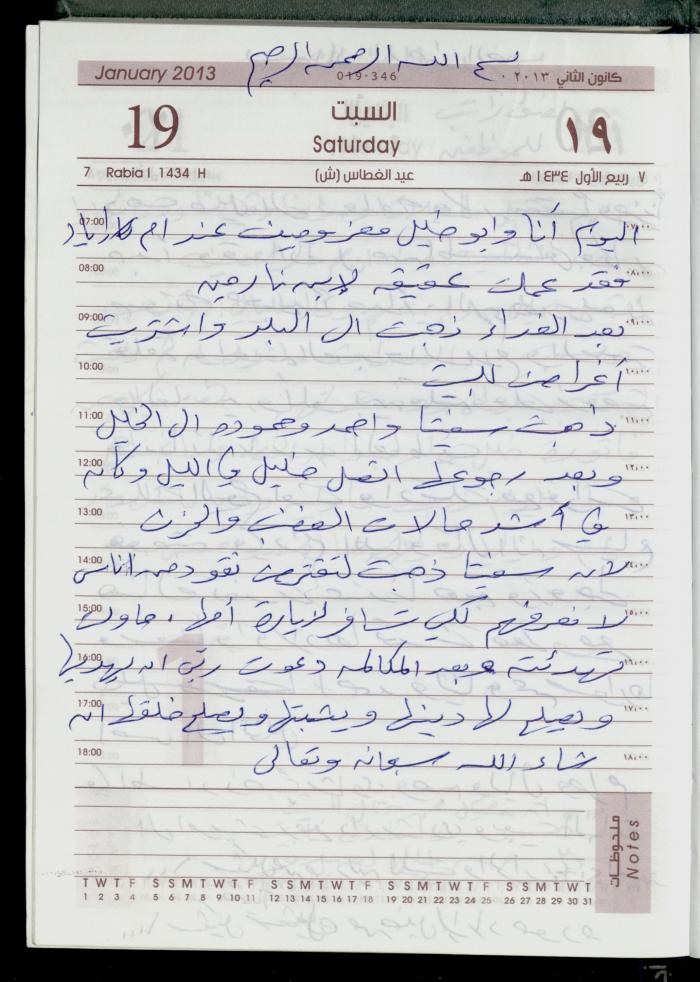 بسم الله الرحمن الرحيم
January 2013 019-346 كانون الثاني ٢٠١٣
19 السبت ١٩
Saturday
7 Rabia I 1434 H عيد الغطاس (ش) ٧ ربيع الأول ١٤٣٤هـ
07:00 اليوم أنا وابو خليل معزومين عند ام اياد ٠٧:٠٠
08:00 فقد عملت عقيقه لإبن نارمين ٠٨:٠٠
09:00 بعد الغداء ذهبت الى البلد واشتريت ٠٩:٠٠
10:00 أغراض للبيت ١٠:٠٠
11:00 ذهبت سفيتا واحمد وحموده الى الخليل ١١:٠٠
12:00 وبعد رجوعها اتصل خليل في الليل وكأنه ١٢:٠٠
13:00 في أشد حالات الغضب والحزن ١٣:٠٠
14:00 لأنه سفيتا ذهبت لتقترض نقود من اناس ١٤:٠٠
15:00 لا نعرفهم لكي تسافر لزيارة أهلها . حاولت ١٥:٠٠
16:00 تهدئته وبعد المكالمه دعوت ربي ان يهديها ١٦:٠٠
17:00 ويصلح لها دينها ويثبتها ويصلح خلقها ان ١٧:٠٠
18:00 شاء الله سبحانه وتعالى ١٨:٠٠
ملحوظات
Notes
T W T F S S M T W T F S S M T W T F S S M T W T F S S M T W T
1 2 3 4 5 6 7 8 9 10 11 12 13 14 15 16 17 18 19 20 21 22 23 24 25 26 27 28 29 30 31